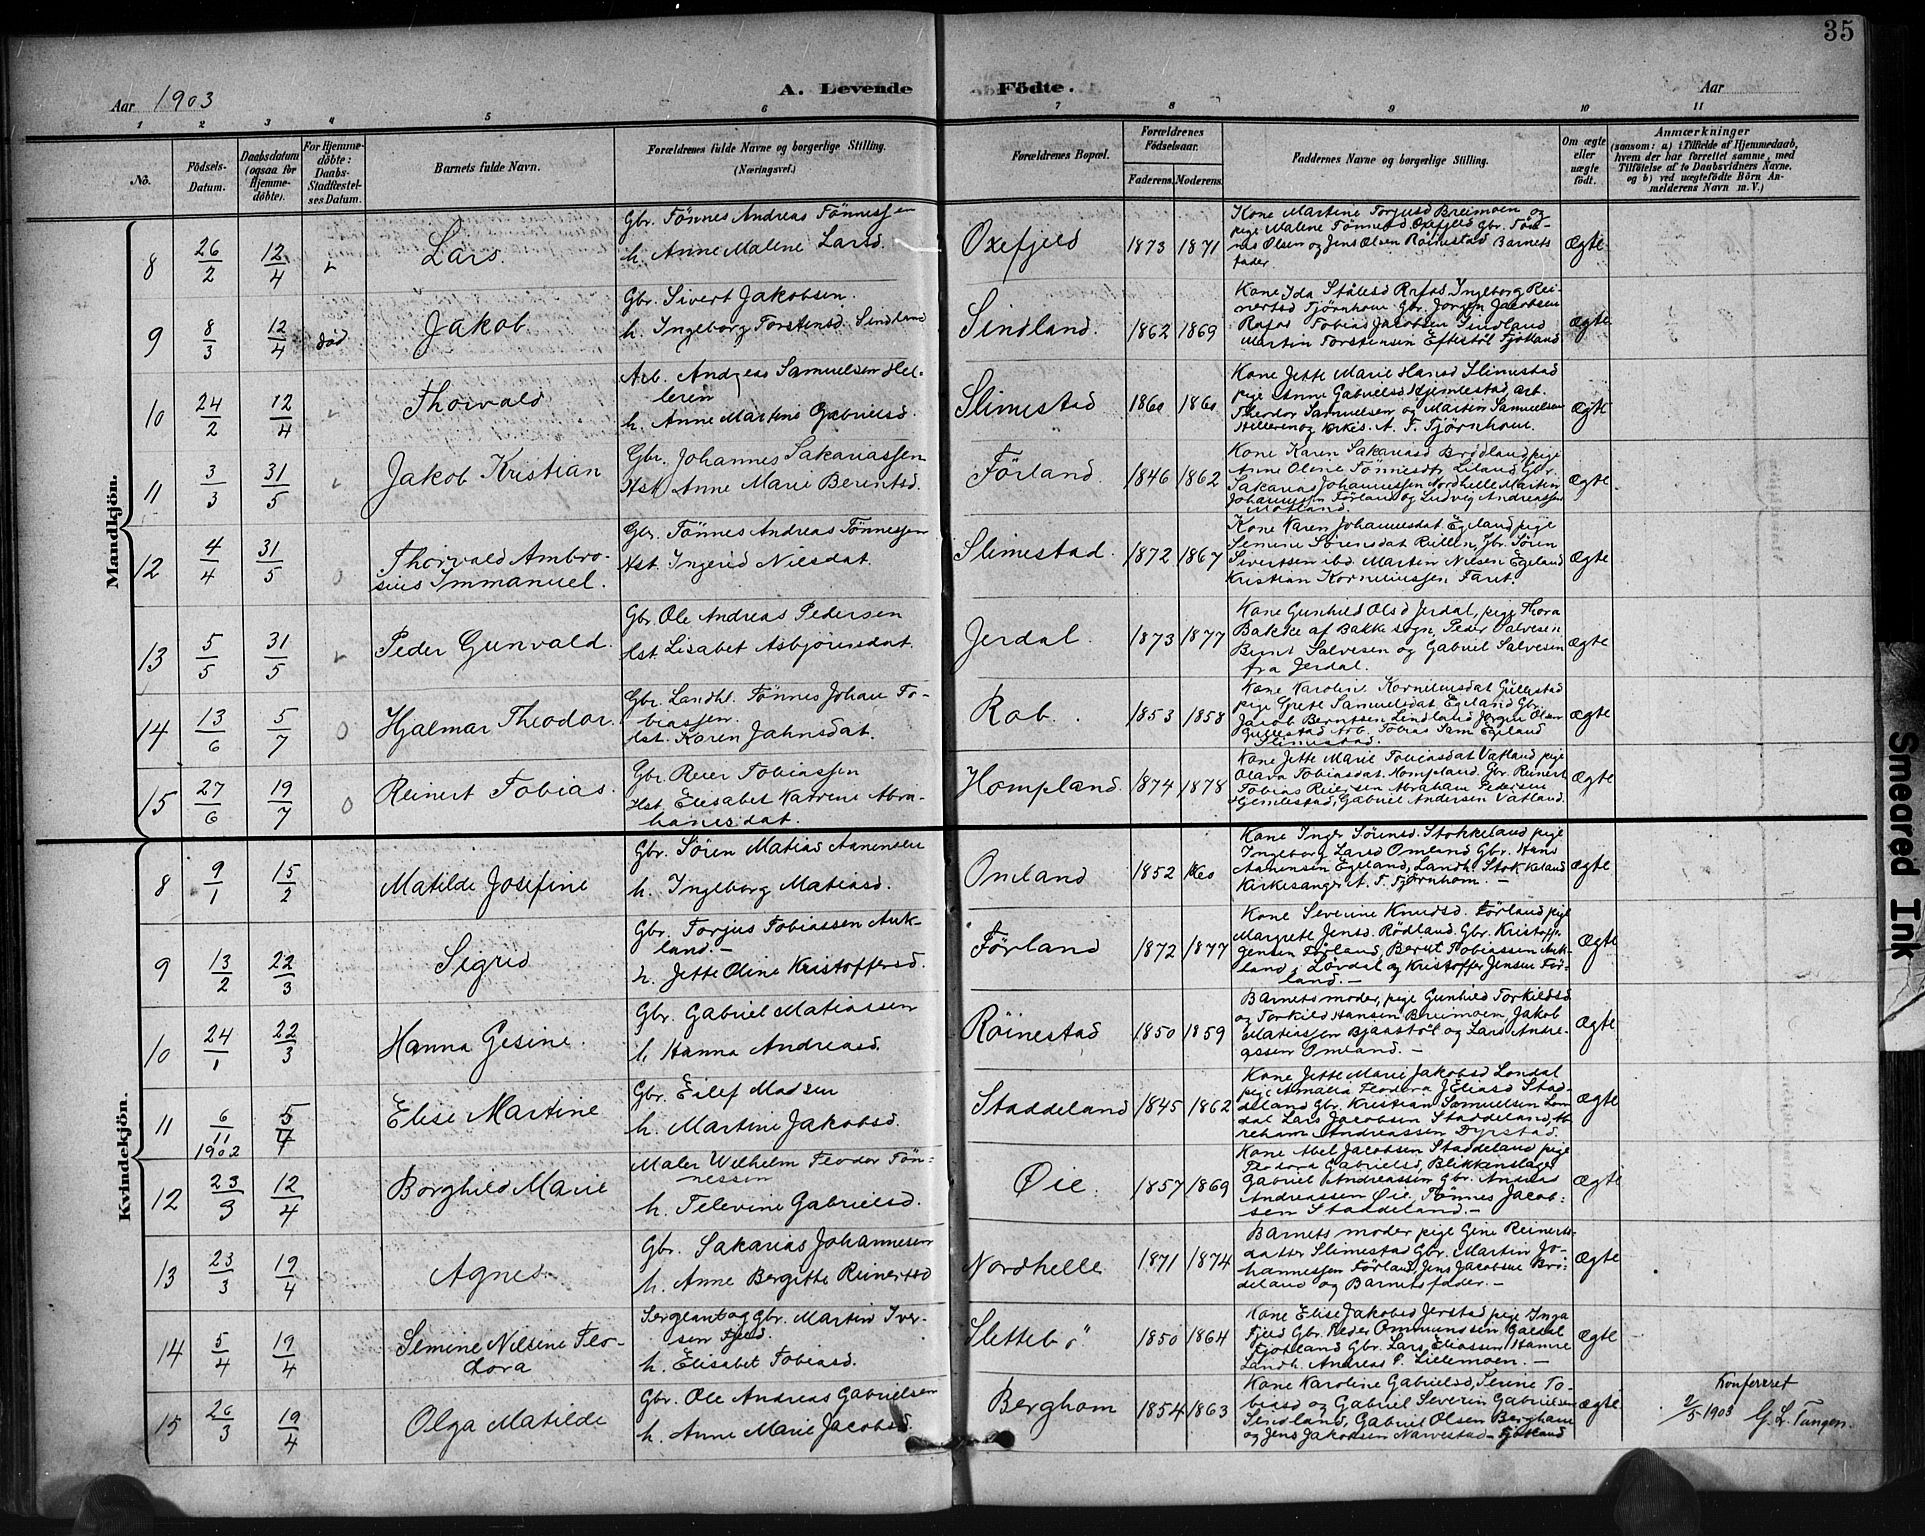 35
Aar 1903
A. Levende Födte.
Aar
1 2 3 4 5 6 7 8 9 10 11
No.
Födsels-Datum.
Daabsdatum (ogsaa for Hjemmedöbte).
For Hjemmedöbte: Daabs-Stadfestelses Datum.
Barnets fulde Navn.
Forældrenes fulde Navne og borgerlige Stilling. (Næringsvei.)
Forældrenes Bopæl.
Forældrenes Födselsaar.
Faderens. Moderens.
Faddernes Navne og borgerlige Stilling.
Om ægte eller uægte födt.
Anmærkninger
(saasom: a) i Tilfælde af Hjemmedaab,
hvem der har forrettet samme, med
Tilföielse af to Daabsvidners Navne,
og b) ved uægtefödte Börn An-
melderens Navn m. V.)
Mandkjön.
8 26/2 12/4 Lars.
Gbr. Tönnes Andreas Tönnessen
h. Anne Malene Larsd.
Oxefjeld 1873 1871
Kone Martine Torjusd Breimoen og
pige Malene Tönnesd. Oxefjeld Gbr. Tön-
nes Olsen og Jens Olsen Röinestad Barnets
fader.
Ægte
9 8/3 12/4 död Jakob
Gbr. Sivert Jakobsen.
h. Ingeborg Torstensd. Sindland
Sindland. 1862 1869
Kone Ida Stålesd Rafos, Ingeborg Rei-
nertsd Tjörnhom Gbr. Jörgen Jacobsen
Rafos Tobias Jacobsen Sindland
Martin Torstensen Eftestöl Fjotland
Ægte
10 24/2 12/4 Thorvald
Arb. Andreas Samuelsen Hel-
leren
h. Anne Martine Gabrielsd.
Slimestad 1860 1860
Kone Jette Marie Hansd Slimestad
pige Anne Gabrielsd Hjemlestad Arb.
Theodor Samuelsen og Martin Samuelsen
Helleren og Kirkes. A. T. Tjörnhom.
Ægte
11 3/3 31/5 Jakob Kristian
Gbr. Johannes Sakariassen
Hst. Anne Marie Berentsd.
Förland. 1846 1862
Kone Karen Sakariasd Brödland pige
Anne Olene Tönnesdt. Liland Gbr.
Sakarias Johannessen Nordhelle Martin
Johannessen Förland og Ludvig Andreassen
Motland.
Ægte
12 4/4 31/5 Thorvald Ambro-
sius Immanuel.
Gbr. Tönnes Andreas Tönnessen
Hst. Ingerid Nilsdat.
Slimestad. 1872 1867
Kone Karen Johannesdat. Egeland pige
Semine Sörensdat Gbr. Sören
Sivertsen ibd. Martin Nilsen Egeland
Kristian Korneliussen Faret.
Ægte
13 5/5 31/5 Peder Gunvald.
Gbr. Ole Andreas Pedersen
Hst. Lisabet Asbjörnsdat.
Jerdal. 1873 1877
Kone Gunhild Olsd Jerdal, pige Thora
Bakke af Bakke sogn, Peder Salvesen
Bernt Salvesen og Gabriel Salvesen
fra Jerdal.
Ægte
14 13/6 5/7 Hjalmar Theodor.
Gbr. Landhl. Tönnes Johan To-
biassen.
Hst. Karen Jahnsdat.
Rob. 1853 1858
Kone Karolin. Korneliusdat Gullestad
pige Grete Samuelsdat Egeland Gbr.
Jacob Berntsen Lindland Jörgen Olsen
Gullestad Arb. Tobias Sam Egeland
Slimestad.
Ægte
15 27/6 19/7 Reinert Tobias.
Gbr. Reier Tobiassen
Hst. Elisabet Katrine Abra-
hamsdat.
Hompland. 1874 1878
Kone Jette Marie Tobiasdat Vatland pige
Olava Tobiasdat Hompland. Gbr. Reinert
Tobias Reiersen Abraham Pedersen
Hjemlestad, Gabriel Andersen Vatland.
Ægte
Kvindekjön.
8 9/1 15/2 Matilde Josefine
Gbr. Sören Matias Aanensen
h. Ingeborg Matiasd.
Omland 1852 1860
Kone Inger Sörensd. Stokkeland pige
Ingeborg Larsd Omland Gbr. Hans
Aanensen Egeland, Landh. Stokkeland
Kirkesanger A. T. Tjörnhom. -
Ægte
9 13/2 22/3 Sigrid
Gbr. Torjus Tobiassen Auk-
land. -
h. Jette Oline Kristoffersd.
Förland 1872 1877
Kone Severine Knudsd. Förland pige
Margrete Jensd. Rödland. Gbr. Kristoff.
Jensen Förland, Berent Tobiassen Auk-
land, Lovdal og Kristoffer Jensen För-
land. -
Ægte
10 24/1 22/3 Hanna Gesine.
Gbr. Gabriel Matiassen
h. Hanna Andreasd.
Röinestad 1850 1859
Barnets moder, pige Gunhild Torkildsd
og Torkild Hansen Breimoen, Jakob
Matiassen Bjaastöl og Lars Andre-
assen Omland. -
Ægte
11 6/11 1902 5/4 Elise Martine
Gbr. Eilef Madsen
h. Martine Jakobsd.
Staddeland 1845 1862
Kone Jette Marie Jakobsd Londal
pige Amalia Teodora J Eliasd Stad-
deland Gbr. Kristian Samuelsen Lon-
dal Lars Jacobsen Staddeland, Ab-
reham Andreassen Dyrstad.
Ægte
12 23/3 12/4 Borghild Marie
Maler Wilhelm Teodor Tön-
nessen
h. Televine Gabrielsd.
Øie. 1857 1869
Kone Abel Jacobsen Staddeland pige
Teodora Gabrielsd, Blikkenslager
Gabriel Andreassen Gbr. Andreas
Andreassen Øie, Tönnes Jacob-
sen Staddeland. -
Ægte
13 23/3 19/4 Agnes.
Gbr. Sakarias Johannesen
h. Anne Bergitte Reinertsd
Nordhelle 1871 1874
Barnets moder pige Gine Reinerts-
datter Slimestad Gbr. Martin Jo-
hannessen Förland, Jens Jacobsen Brö-
deland og Barnets fader. -
Ægte
14 5/4 19/4 Semine Nilsine Teo-
dora
Sergeant og Gbr. Martin Iver-
sen Fjeld.
h. Elisabet Tobiasd.
Slettebö 1850 1864
Kone Elise Jakobsd Jerstad, pige Inga
Fjeld Gbr. Peder Ommundsen Gaedal
Fjotland Gbr. Lars Eliassen Hamre
Landh. Andreas P. Lillemoen. -
Ægte
15 26/3 19/4 Olga Matilde
Gbr. Ole Andreas Gabrielsen
h. Anne Marie Jacobsd
Berghom 1854 1863
Kone Karoline Gabrielsd, Serine To-
biasd og Gabriel Severin Gabrielsen
Sindland, Gabriel Olsen Berghom
og Jens Jakobsen Narvestad - Fjotland
Ægte
Konfereret
2/5-1903 G. L. Tangen.
Smeared Ink